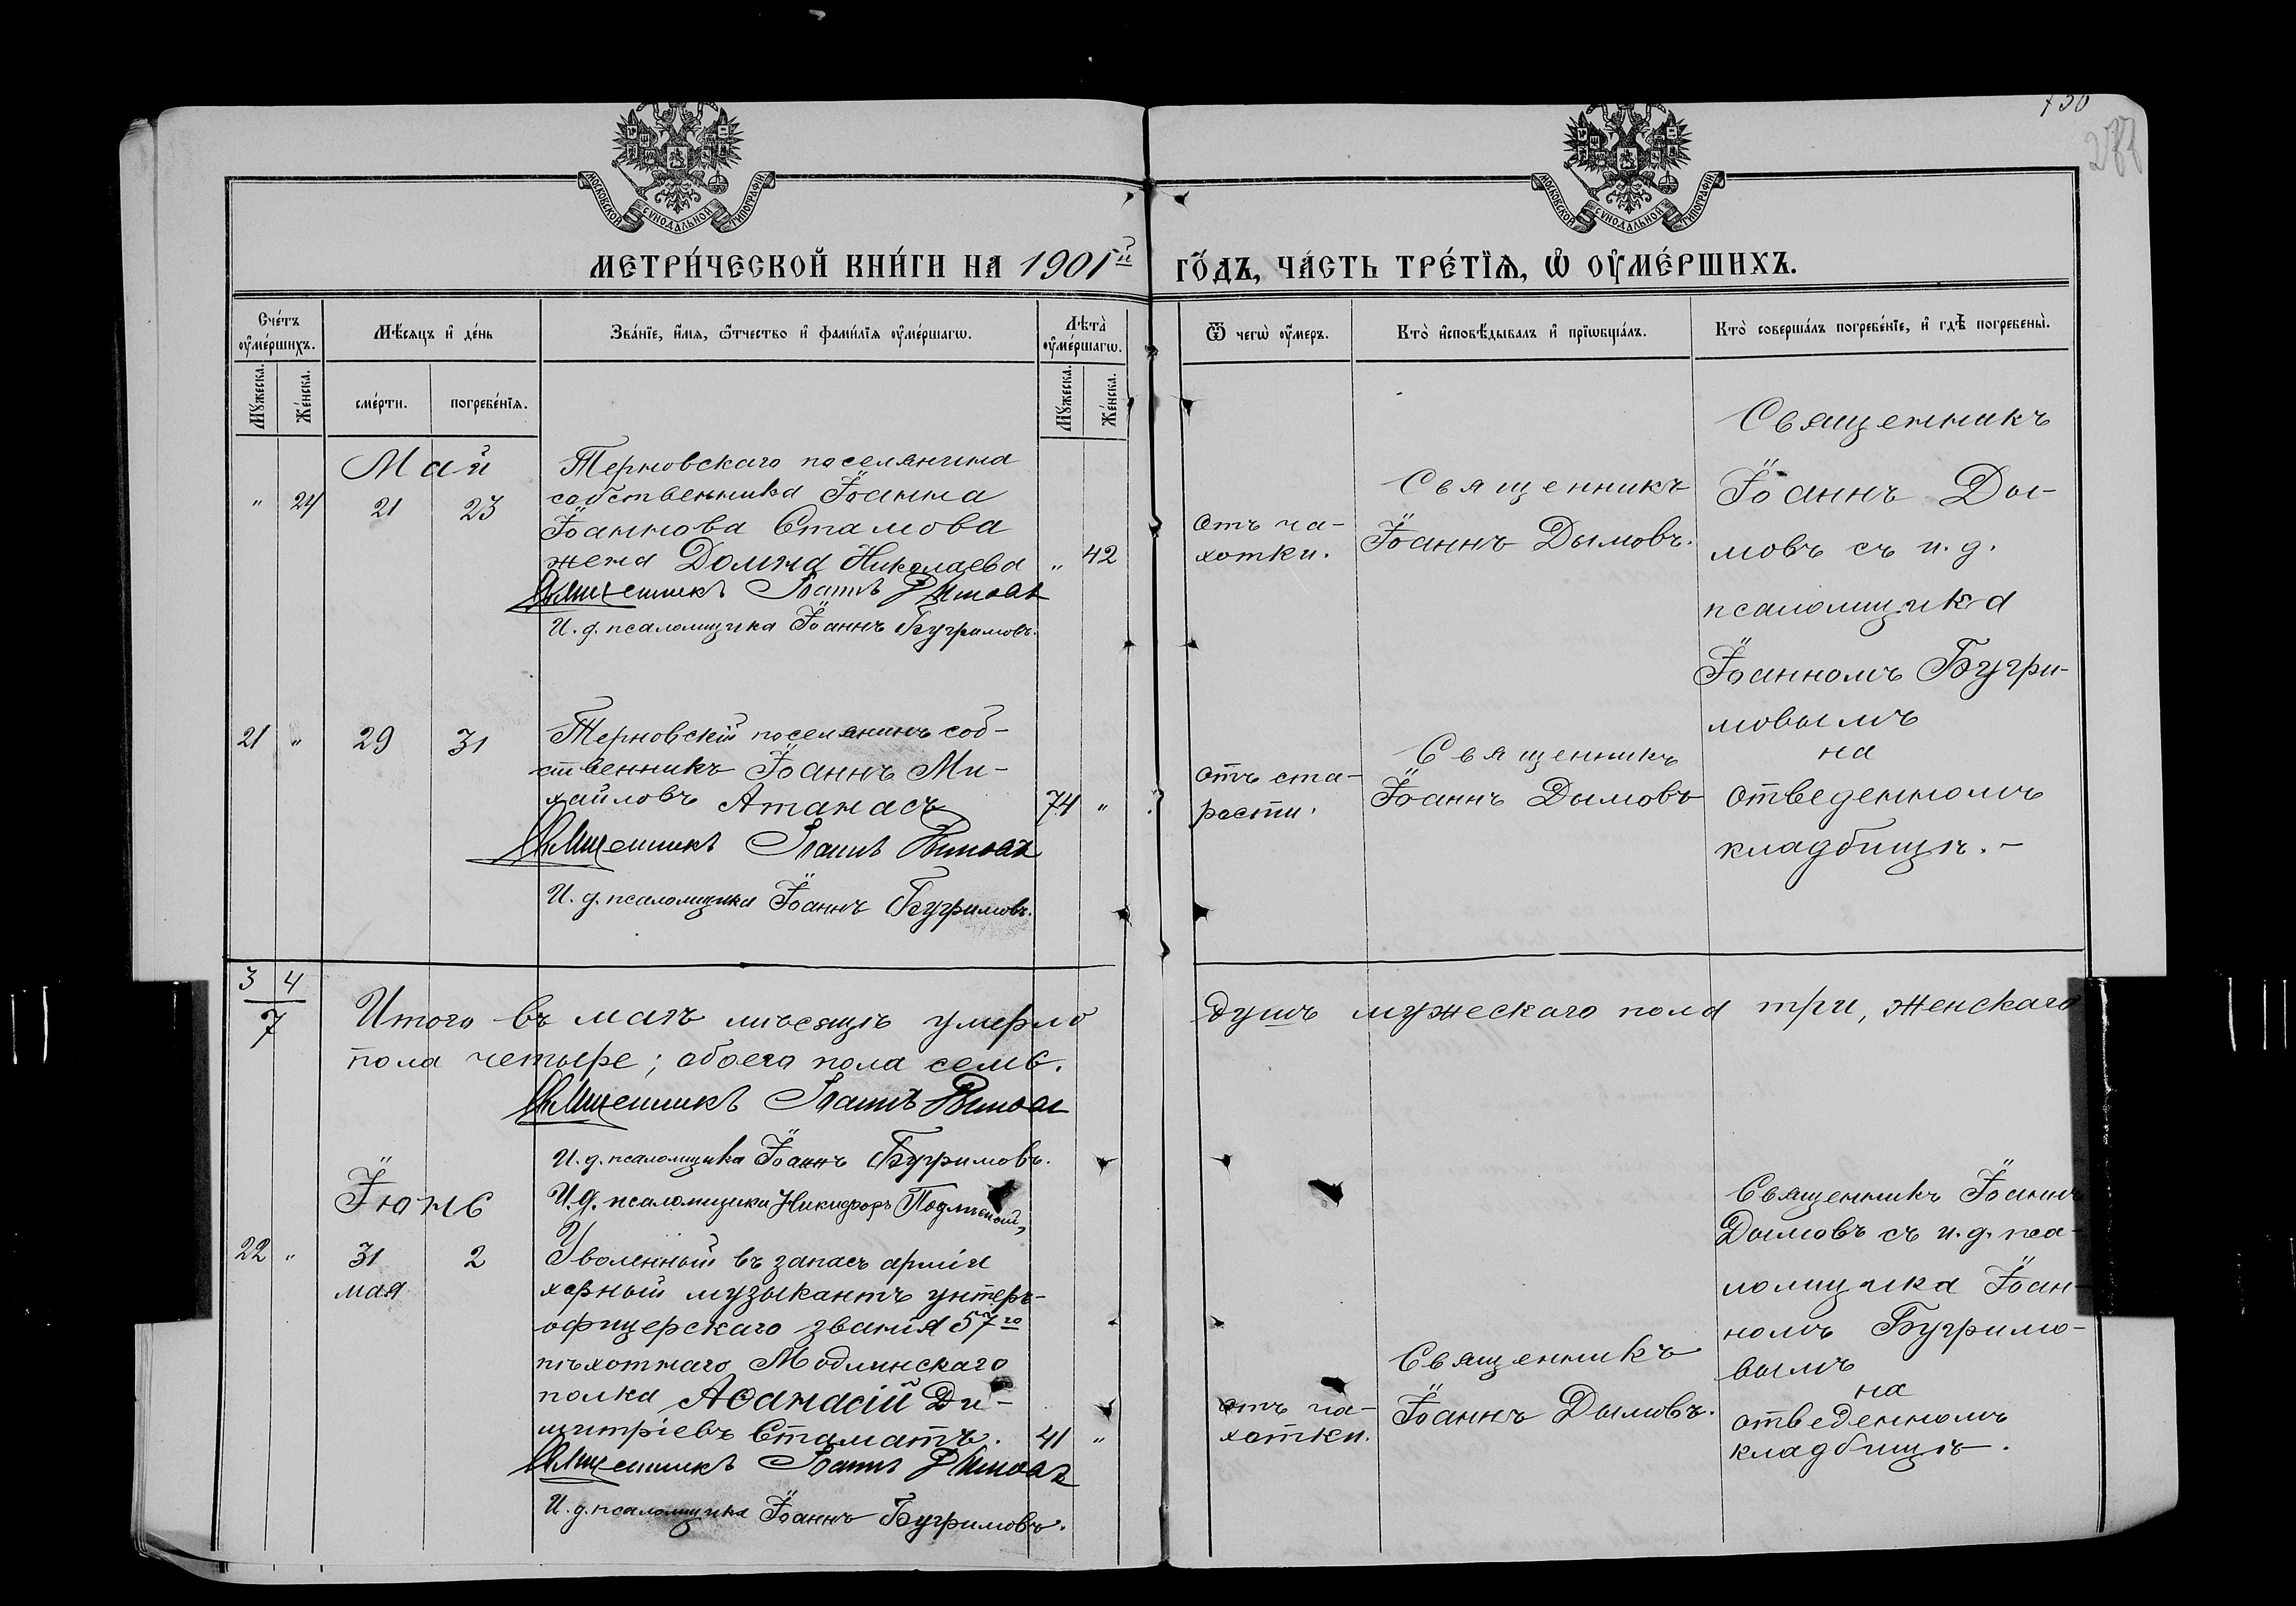 730
МОСКОВСКОЙ СУНОДАЛЬНОЙ ТИПОГРАФИИ
МОСКОВСКОЙ СУНОДАЛЬНОЙ ТИПОГРАФИИ
МЕТРИ́ЧЕСКОЙ КНИ́ГИ НА 1901й ГО́ДЪ, ЧА́СТЬ ТРЕ́ТЇѦ, Ѡ҆ ОУ҆МЕ́РШИХЪ.
Сче́тъ оу҆ме́ршихъ.
Мѣ́сяцъ и҆ де́нь
Зва́нїе, и҆́мѧ, ѻ҆́тчество и҆ фами́лїѧ оу҆ме́ршагѡ.
Лѣ́та оу҆ме́ршагѡ.
Ѿ чегѡ̀ оу҆́меръ.
Кто̀ и҆сповѣ́дывалъ и҆ прїѡбща́лъ.
Кто̀ соверша́лъ погребе́нїе, и҆ гдѣ̀ погребены̀.
Мꙋ́жеска.
Же́нска.
сме́рти.
погребе́нїѧ.
Мꙋ́жеска.
Же́нска.
Май
" 24 21 23
Терновскаго поселянина
собственника Іоанна
Іоаннова Стамова
жена Домна Николаева " 42
Священникъ Іоаннъ Дымовъ
И. д. псаломщика Іоаннъ Бугримовъ.
отъ ча-
хотки.
Священникъ
Іоаннъ Дымовъ.
Священникъ
Іоаннъ Ды-
мовъ съ и. д.
псаломщика
Іоанномъ Бугри-
мовымъ
на
отведенномъ
кладбищѣ.-
21 " 29 31
Терновскій поселянинъ соб-
ственникъ Іоаннъ Ми-
хайловъ Атанасъ 74 "
Священникъ Іоаннъ Дымовъ
И. д. псаломщика Іоаннъ Бугримовъ.
отъ ста-
рости.
Священникъ
Іоаннъ Дымовъ
3 4
7
Итого въ маѣ мѣсяцѣ умерло душъ мужескаго пола три, женскаго
пола четыре; обоего пола семь.
Священникъ Іоаннъ Дымовъ
И. д. псаломщика Іоаннъ Бугримовъ.
И. д. псаломщика Никифоръ
Іюнь
22 " 31 2
мая
Уволенный въ запасъ арміи
хорный музыкантъ унтеръ-
офицерскаго званія 57го
пѣхотнаго Модлинскаго
полка Аѳанасій Ди-
митріевъ Стаматъ. 41 "
Священникъ Іоаннъ Дымовъ
И. д. псаломщика Іоаннъ Бугримовъ.
отъ ча-
хотки.
Священникъ
Іоаннъ Дымовъ.
Священникъ Іоаннъ
Дымовъ съ и. д. пса-
ломщика Іоан-
номъ Бугримо-
вымъ
на
отведенномъ
кладбищѣ.